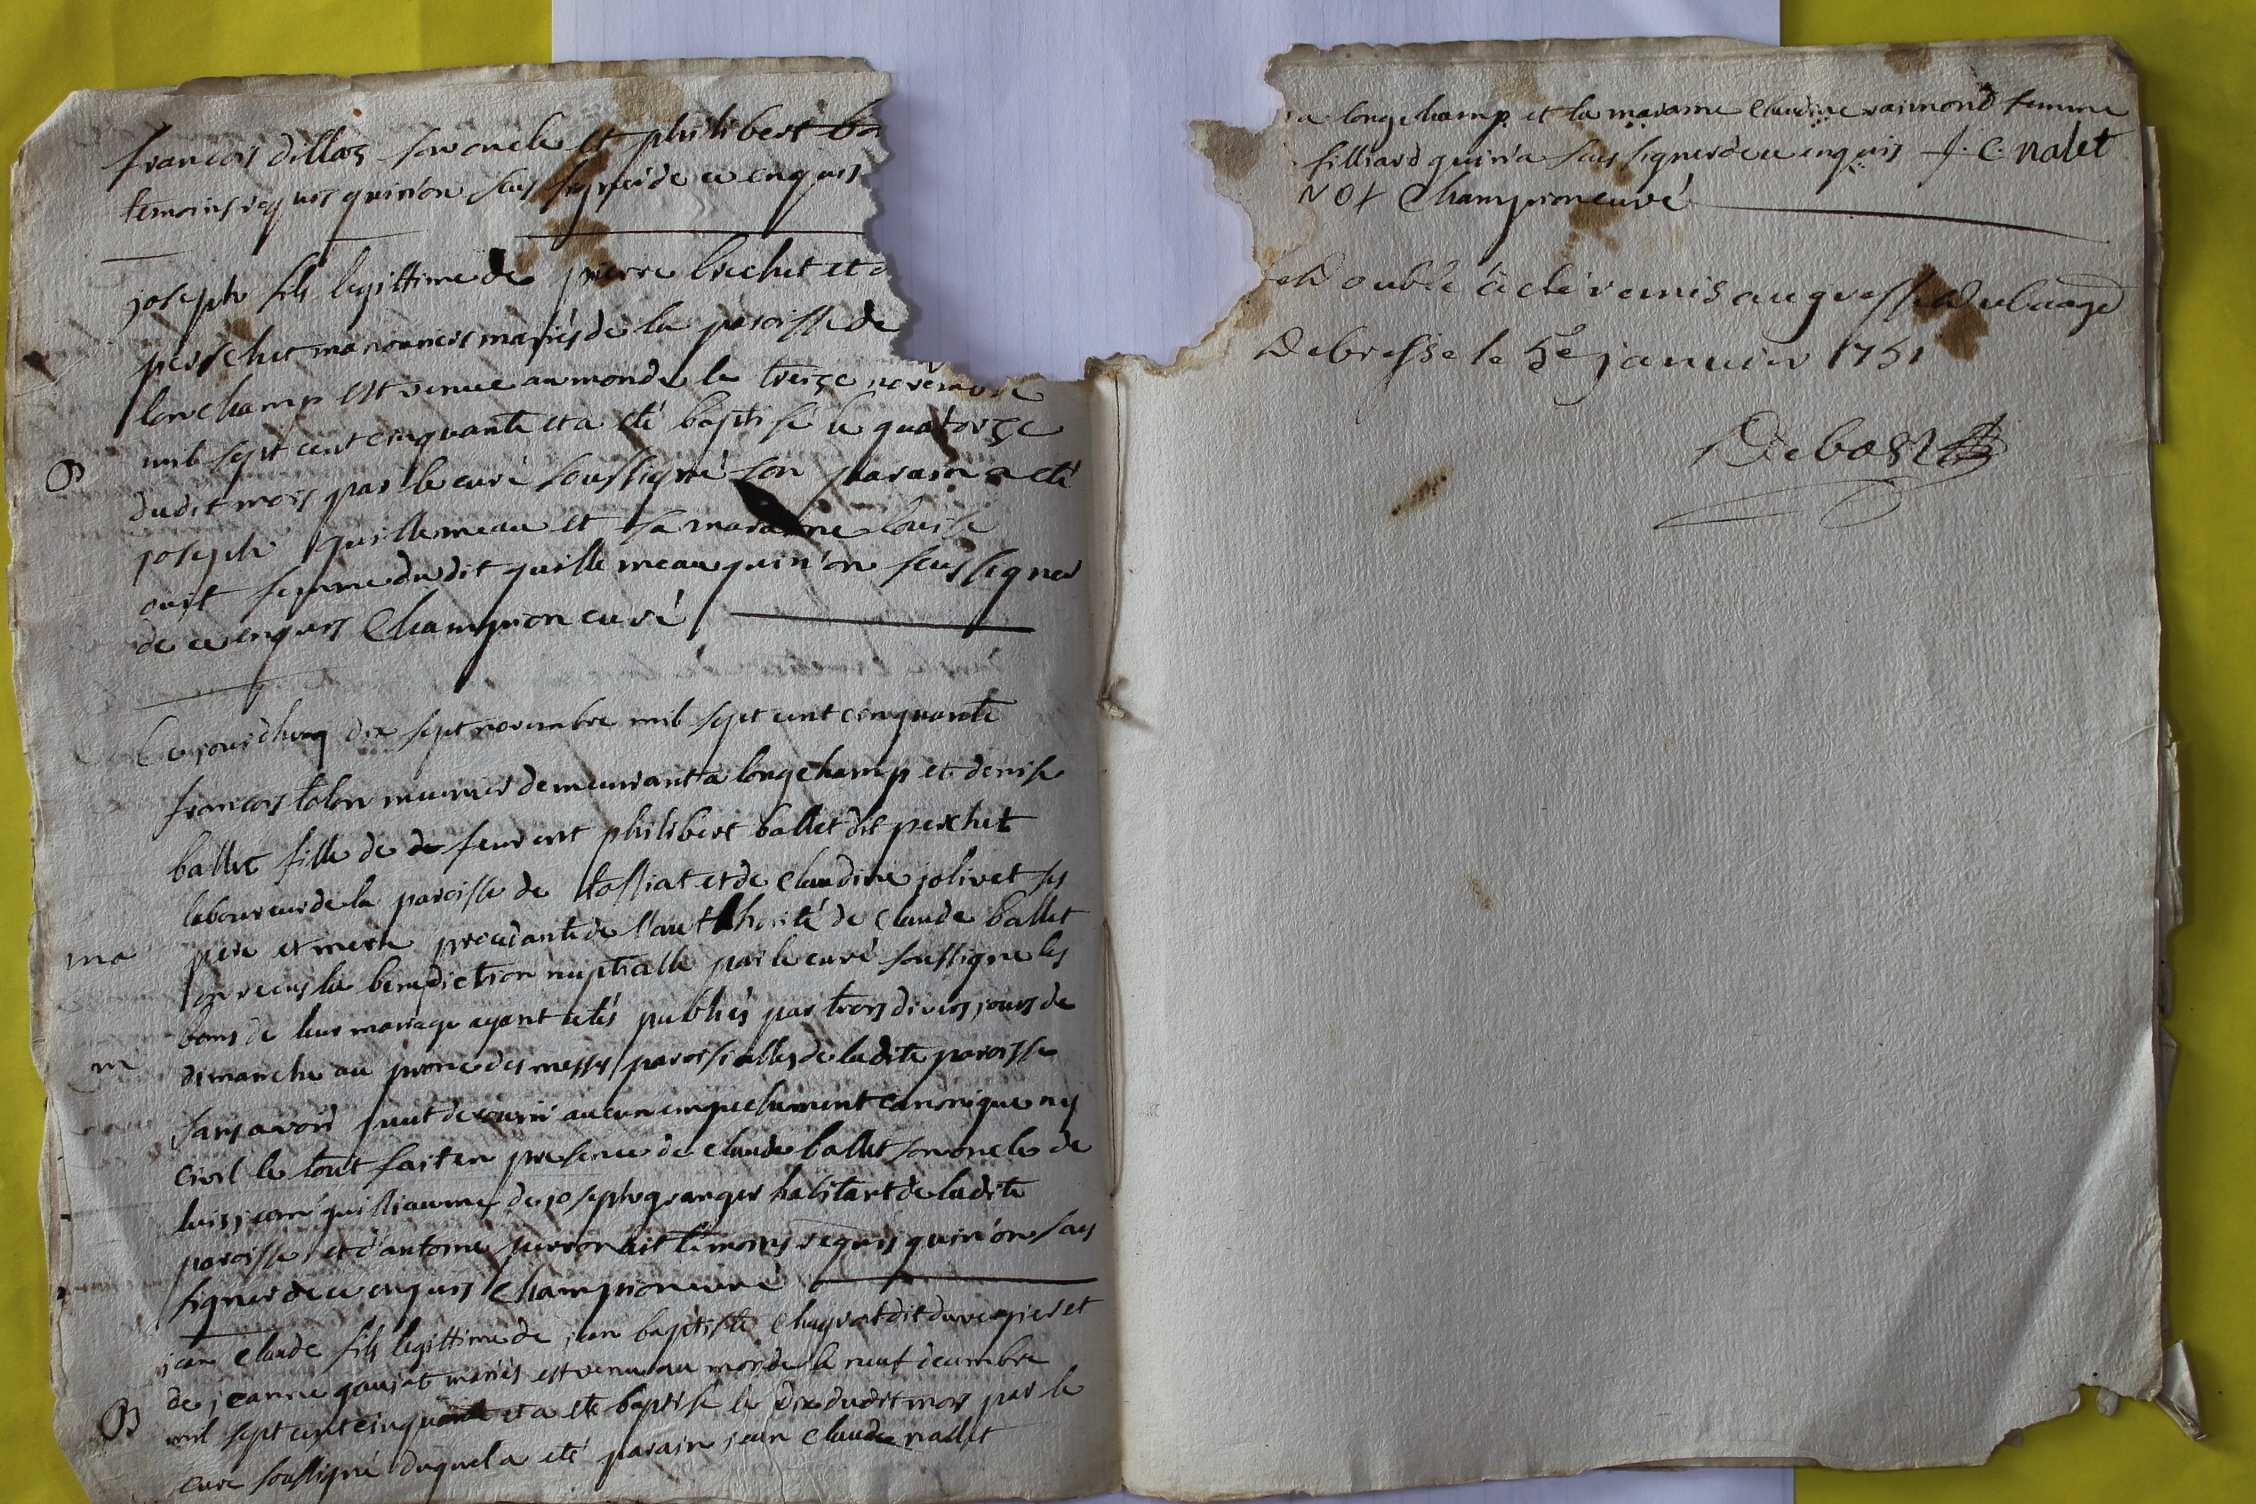 francois dillas son oncle et philibert ba
temoins requis quin'on scus signer de ce enquis
joseph fils legittime de pierre brechet et
perrchet manouvriers mariés de la paroisse de
lonchamp est venue au monde le treize novembre
mil sept cent cinquante et a eté baptisé le quatorze
B
dudit mois par le curé soussigné son parain a eté
joseph guillemeau et sa maraine louise
ouit femme du dit guillemeau quin'on scus signer
de ce enquis Champion curé
Cejourdhuy dix sept novembre mil sept cent cinquante
francois tolon munier demeurant a longchamp et denise
ballet fille de de feu philibert ballet dit perchet
laboureur de la paroisse de tossiat et de claudine jolivet ses
ma
pere et mere procedante de l'authhorité de claude ballet
on recus la benediction nuptialle par le curé soussigne les
bans de leur mariage ayant etés publiés par trois divers jours de
m
dimanche au prone des messes paroissialles de ladite paroisse
sans avoir peut decouvrir aucun empechement canonique ny
civil le tout fait en presence de claude ballet son oncle de
luis jean guilliaume de joseph granger habitant de ladite
paroisse et d'antoine perron temoins requis quin'on scus
signer de ce enquis Champion curé
jean claude fils legittime de jean baptiste chagrat dit duvergier et
de jeanne goujat mariés est venu au monde le neuf decembre
B
mil sept cent cinquante et a eté baptisé le dix dudit mois par le
curé soussigné duquel a eté parain jean claude nallet
a longchamp et la maraine claudine raimond femme
filliard quin'a scus signer de ce enquis j. c. nalet
not Champion curé
Double a eté remis au greffe du baage
De bresse le 5e janvier 1751
Debost